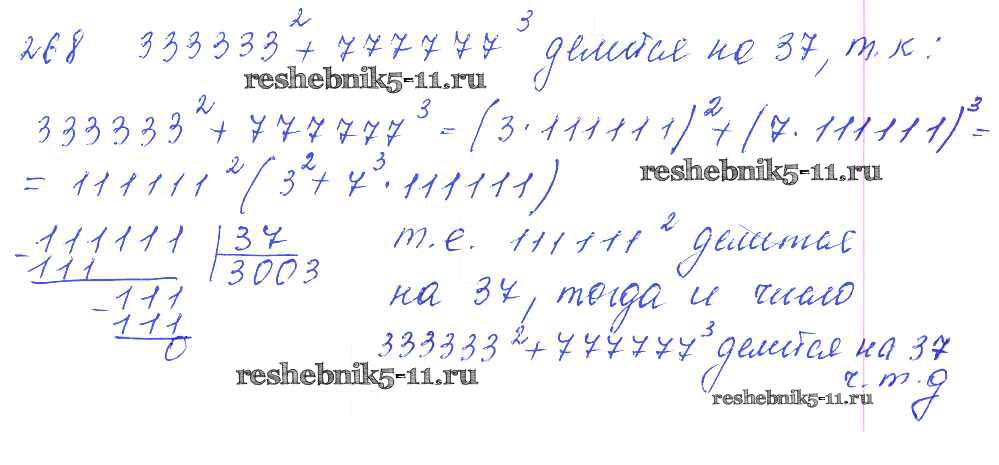 268 333333² + 777777³ делится на 37, т.к:
reshebnik5-11.ru
333333² + 777777³ = (3·111111)² + (7·111111)³ =
reshebnik5-11.ru
= 111111² (3² + 7³·111111)
-111111 | 37
111 3003
-111
111
0
т.е. 111111² делится
на 37, тогда и число
333333² + 777777³ делится на 37
ч.т.д
reshebnik5-11.ru
reshebnik5-11.ru